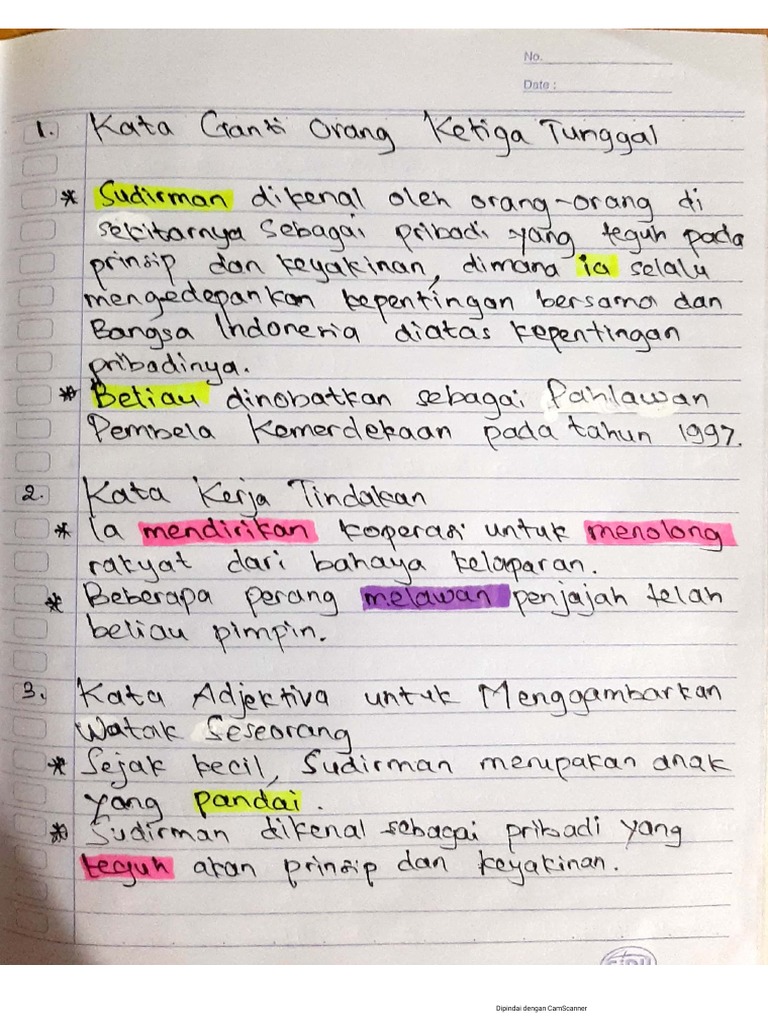 No.
Date :
1. Kata Ganti Orang Ketiga Tunggal
* Sudirman dikenal oleh orang-orang di
sekitarnya sebagai pribadi yang teguh pada
prinsip dan keyakinan, dimana ia selalu
mengedepankan kepentingan bersama dan
Bangsa Indonesia diatas kepentingan
pribadinya.
* Beliau dinobatkan sebagai Pahlawan
Pembela Kemerdekaan pada tahun 1997.
2. Kata Kerja Tindakan
* Ia mendirikan koperasi untuk menolong
rakyat dari bahaya kelaparan.
* Beberapa perang melawan penjajah telah
beliau pimpin.
3. Kata Adjektiva untuk Menggambarkan
Watak Seseorang
* Sejak kecil, Sudirman merupakan anak
yang pandai.
* Sudirman dikenal sebagai pribadi yang
teguh akan prinsip dan keyakinan.
SIDU
Dipindai dengan CamScanner